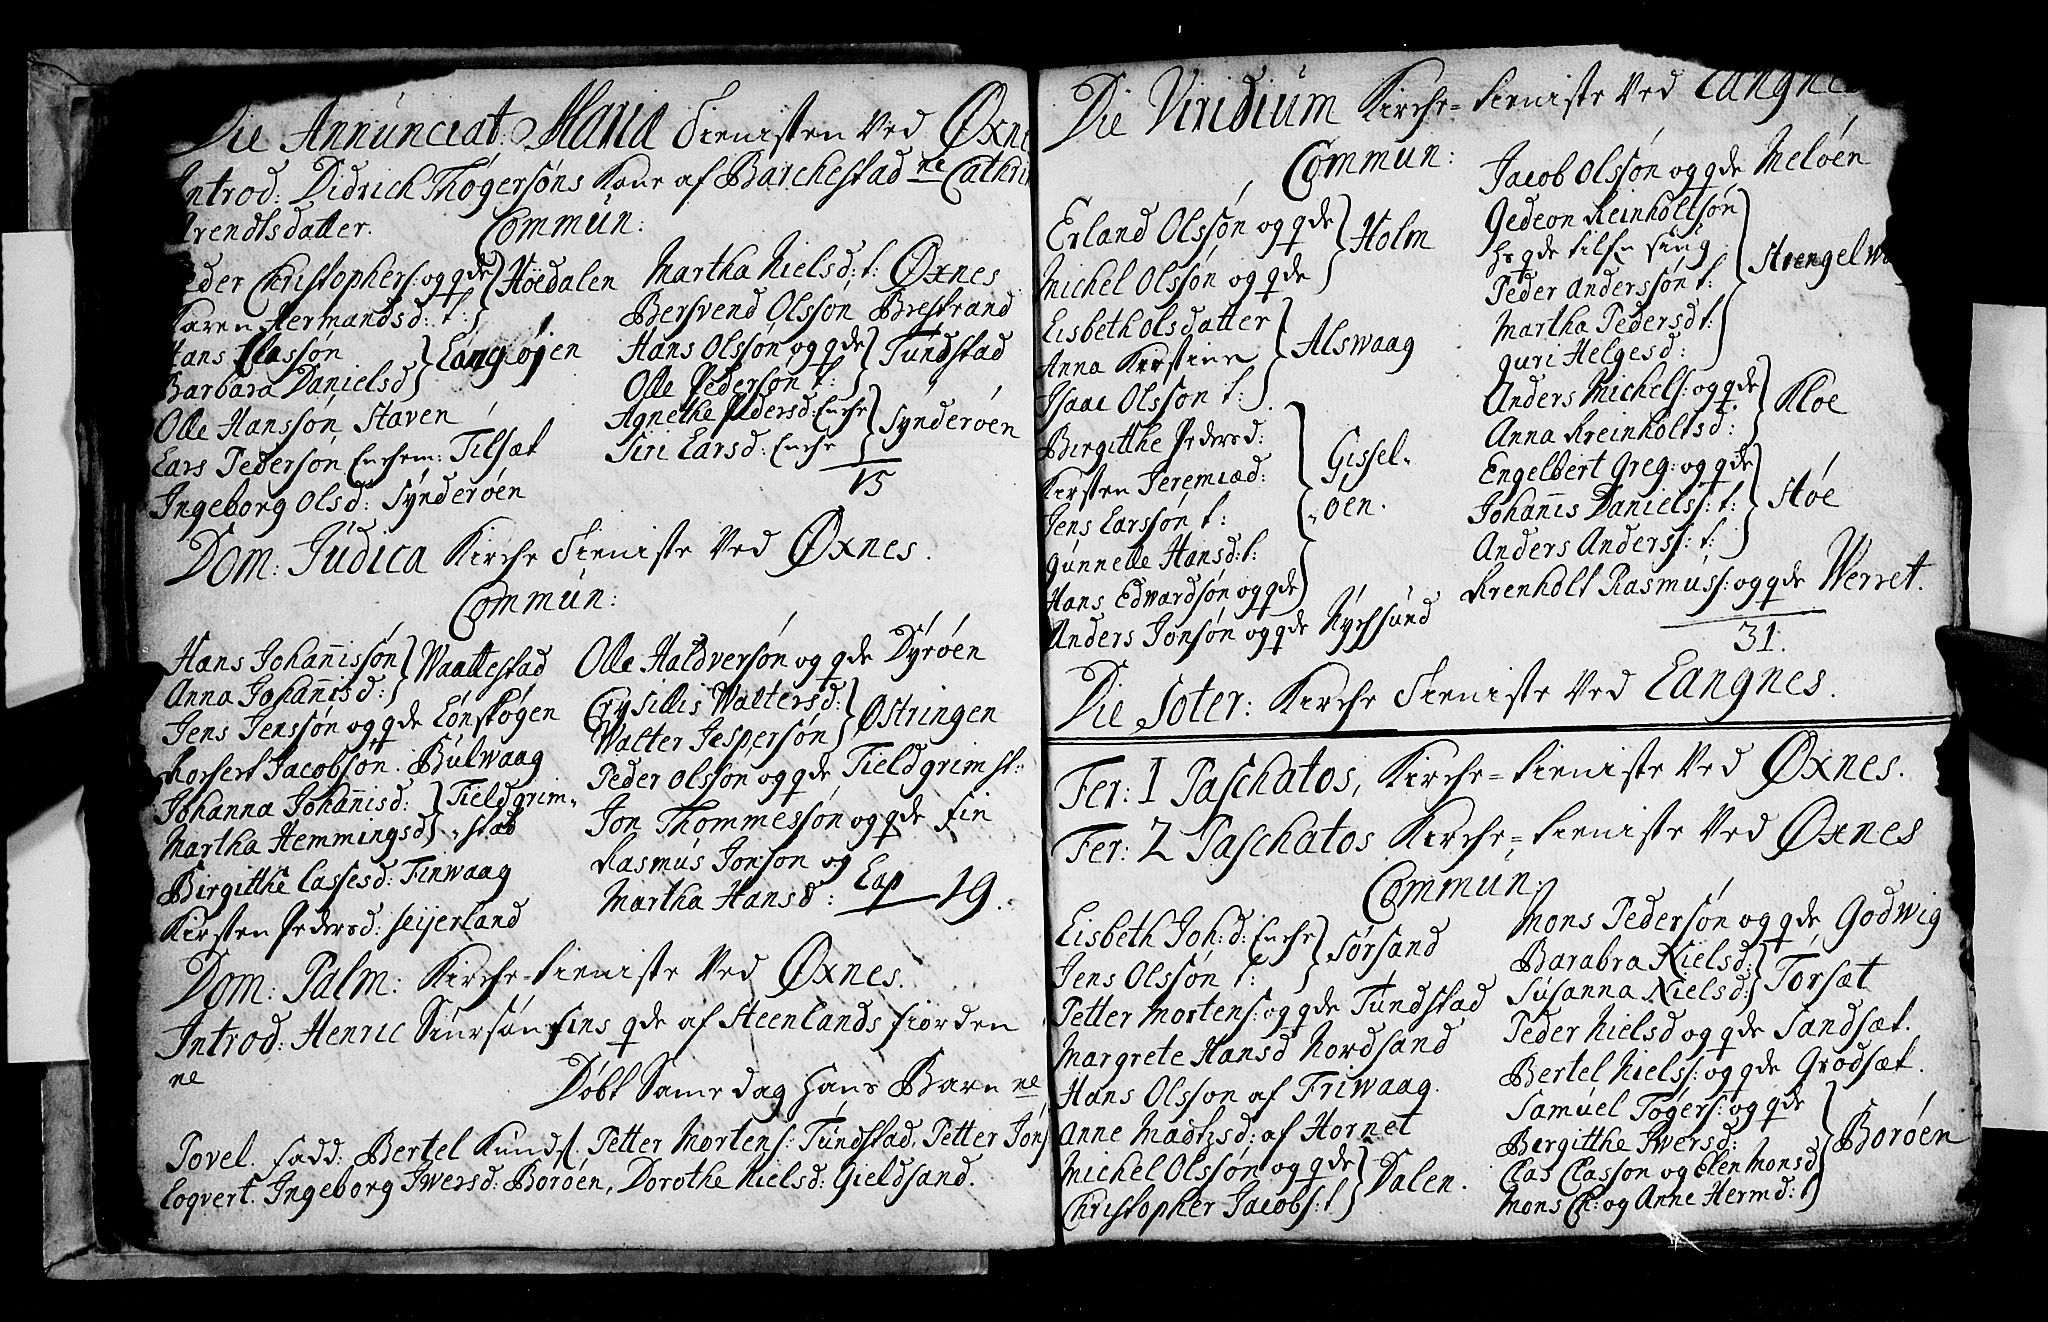 Die Annunciat: Mariæ Tienisten Ved Øxne
Introd: Didrich Thøgersøns Kone af Barchestad ne Cathri
Arendtsdatter.
Commun:
Peder Christophers: og qde } Høedalen
Karen Hermandsd: t: }
Hans Classøn } Langøjen
Barbara Danielsd }
Olle Hanssøn Staven
Lars Pedersøn Enchem: Tilsæt
Ingeborg Olsd: Synderøen
Martha Nielsd: t: Øxnes
Bersvend Olssøn Brestrand
Hans Olssøn og qde } Tundstad
Olle Pedersøn t: }
Agnethe Pedersd: Enche } Synderøen
Siri Larsd: Enche }
15
Dom: Judica Kirche Tieniste Ved Øxnes.
Commun:
Hans Johannissøn } Waattestad
Anna Johannisd: }
Jens Jenssøn og qde Lønskogen
Norsert Jacobsøn. Bulwaag
Johanna Johannisd: } Tieldgrim-
Martha Hemmingsd } -stad
Birgitthe Lassesd: Finwaag
Kirsten Pedersd: Seijerland
Olle Haldversøn og qde Dyrøen
Crysillis Waltersd: } Østringen
Walter Jespersøn }
Peder Olsson og qde Tieldgrimst:
Jon Thommessøn og qde Fin
Rasmus Jonson og
Martha Hansd: Lap 19.
Dom: Palm: Kirche-tieniste Ved Øxnes.
Introd: Henric Siursøn Fins qde af Steenlands fiorden
ne
Døbt Same dag Hans Barn ne
Povel. Fadd. Bertel Kunds. Petter Mortens: Tundstad, Petter Jons
Loqvert. Ingeborg Iwersd: Borøen, Dorothe Nielsd: Gieldsand.
Die Viridium Kirche-tieniste Ved Langne
Commun:
Erland Olssøn og qde } Holm
Michel Olssøn og qde }
Lisbeth Olsdatter } Alswaag
Anna Kirstine }
Isaac Olsson t: }
Birgitthe Pedersd: } Gissel-
Kirsten Jeremiæd: } -øen.
Jens Larssøn t: }
Gunnelle Hansd: t: }
Hans Edwardsøn og qde }
Anders Jonsøn og qde Nychsund
Jacob Olssøn og qde Meløen
Gedeon Reinholtsøn } Strengelwa
Hs qde tilsn sing }
Peder Anderssøn t: }
Martha Pedersd t: }
guri Helgesd: }
Anders Michels: og qde } Kloe
Anna Kreinholtsd: }
Engelbert Greg: og qde } Støe
Johannis Daniels: t: }
Anders Anders: t: }
Krenholt Rasmus: og qde Werret.
31.
Die Soter: Kirche Tieniste Ved Langnes.
Fer: 1 Paschatos, Kirche-tieniste Ved Øxnes.
Fer: 2 Paschatos Kirche-tieniste Ved Øxnes
Commun:
Lisbeth Joh: d: Enche } Sørsand
Jens Olssøn t: }
Petter Mortens: og qde Tundstad
Margrete Hansd Nordsand
Hans Olsson af Friwaag.
Anne Madtzsd: af Hornet
Michel Olssøn og qde } Dalen.
Christopher Jacobs: t }
Mons Pedersøn og qde Godwig
Barabra Nielsd: } Torsæt
Susanna Nielsd: }
Peder Nielsd og qde Sandsæt.
Bertel Niels: og qde Grodsæt.
Samuel Togers: og qde } Borøen
Bergitthe Iwersd: }
Clas Classon og Elen Monsd }
Mons Ch: og Anne Hermd: t }